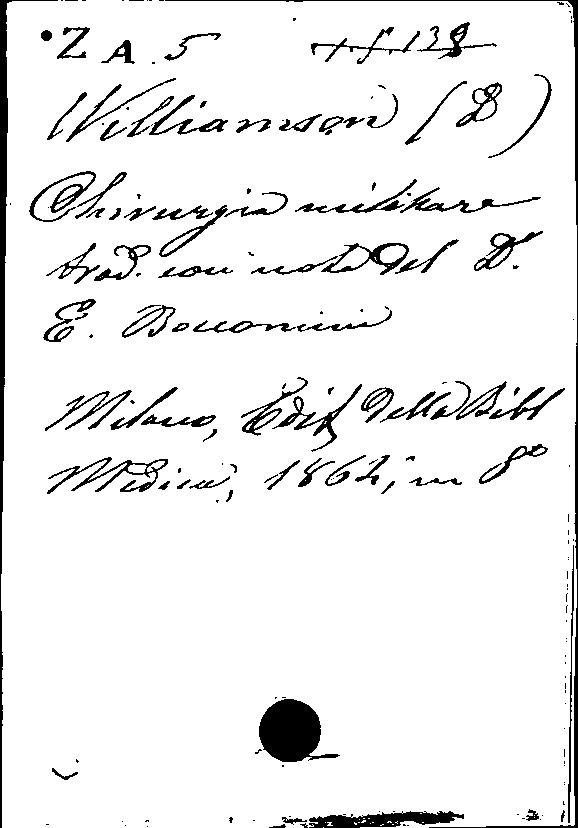 Z A. 5 +.f.138
Williamson (D)
Chirurgia militare
trad. con note del Dr
E. Bocconimi
Milano, Edit. della Bibl
Medica, 1864, in 8º